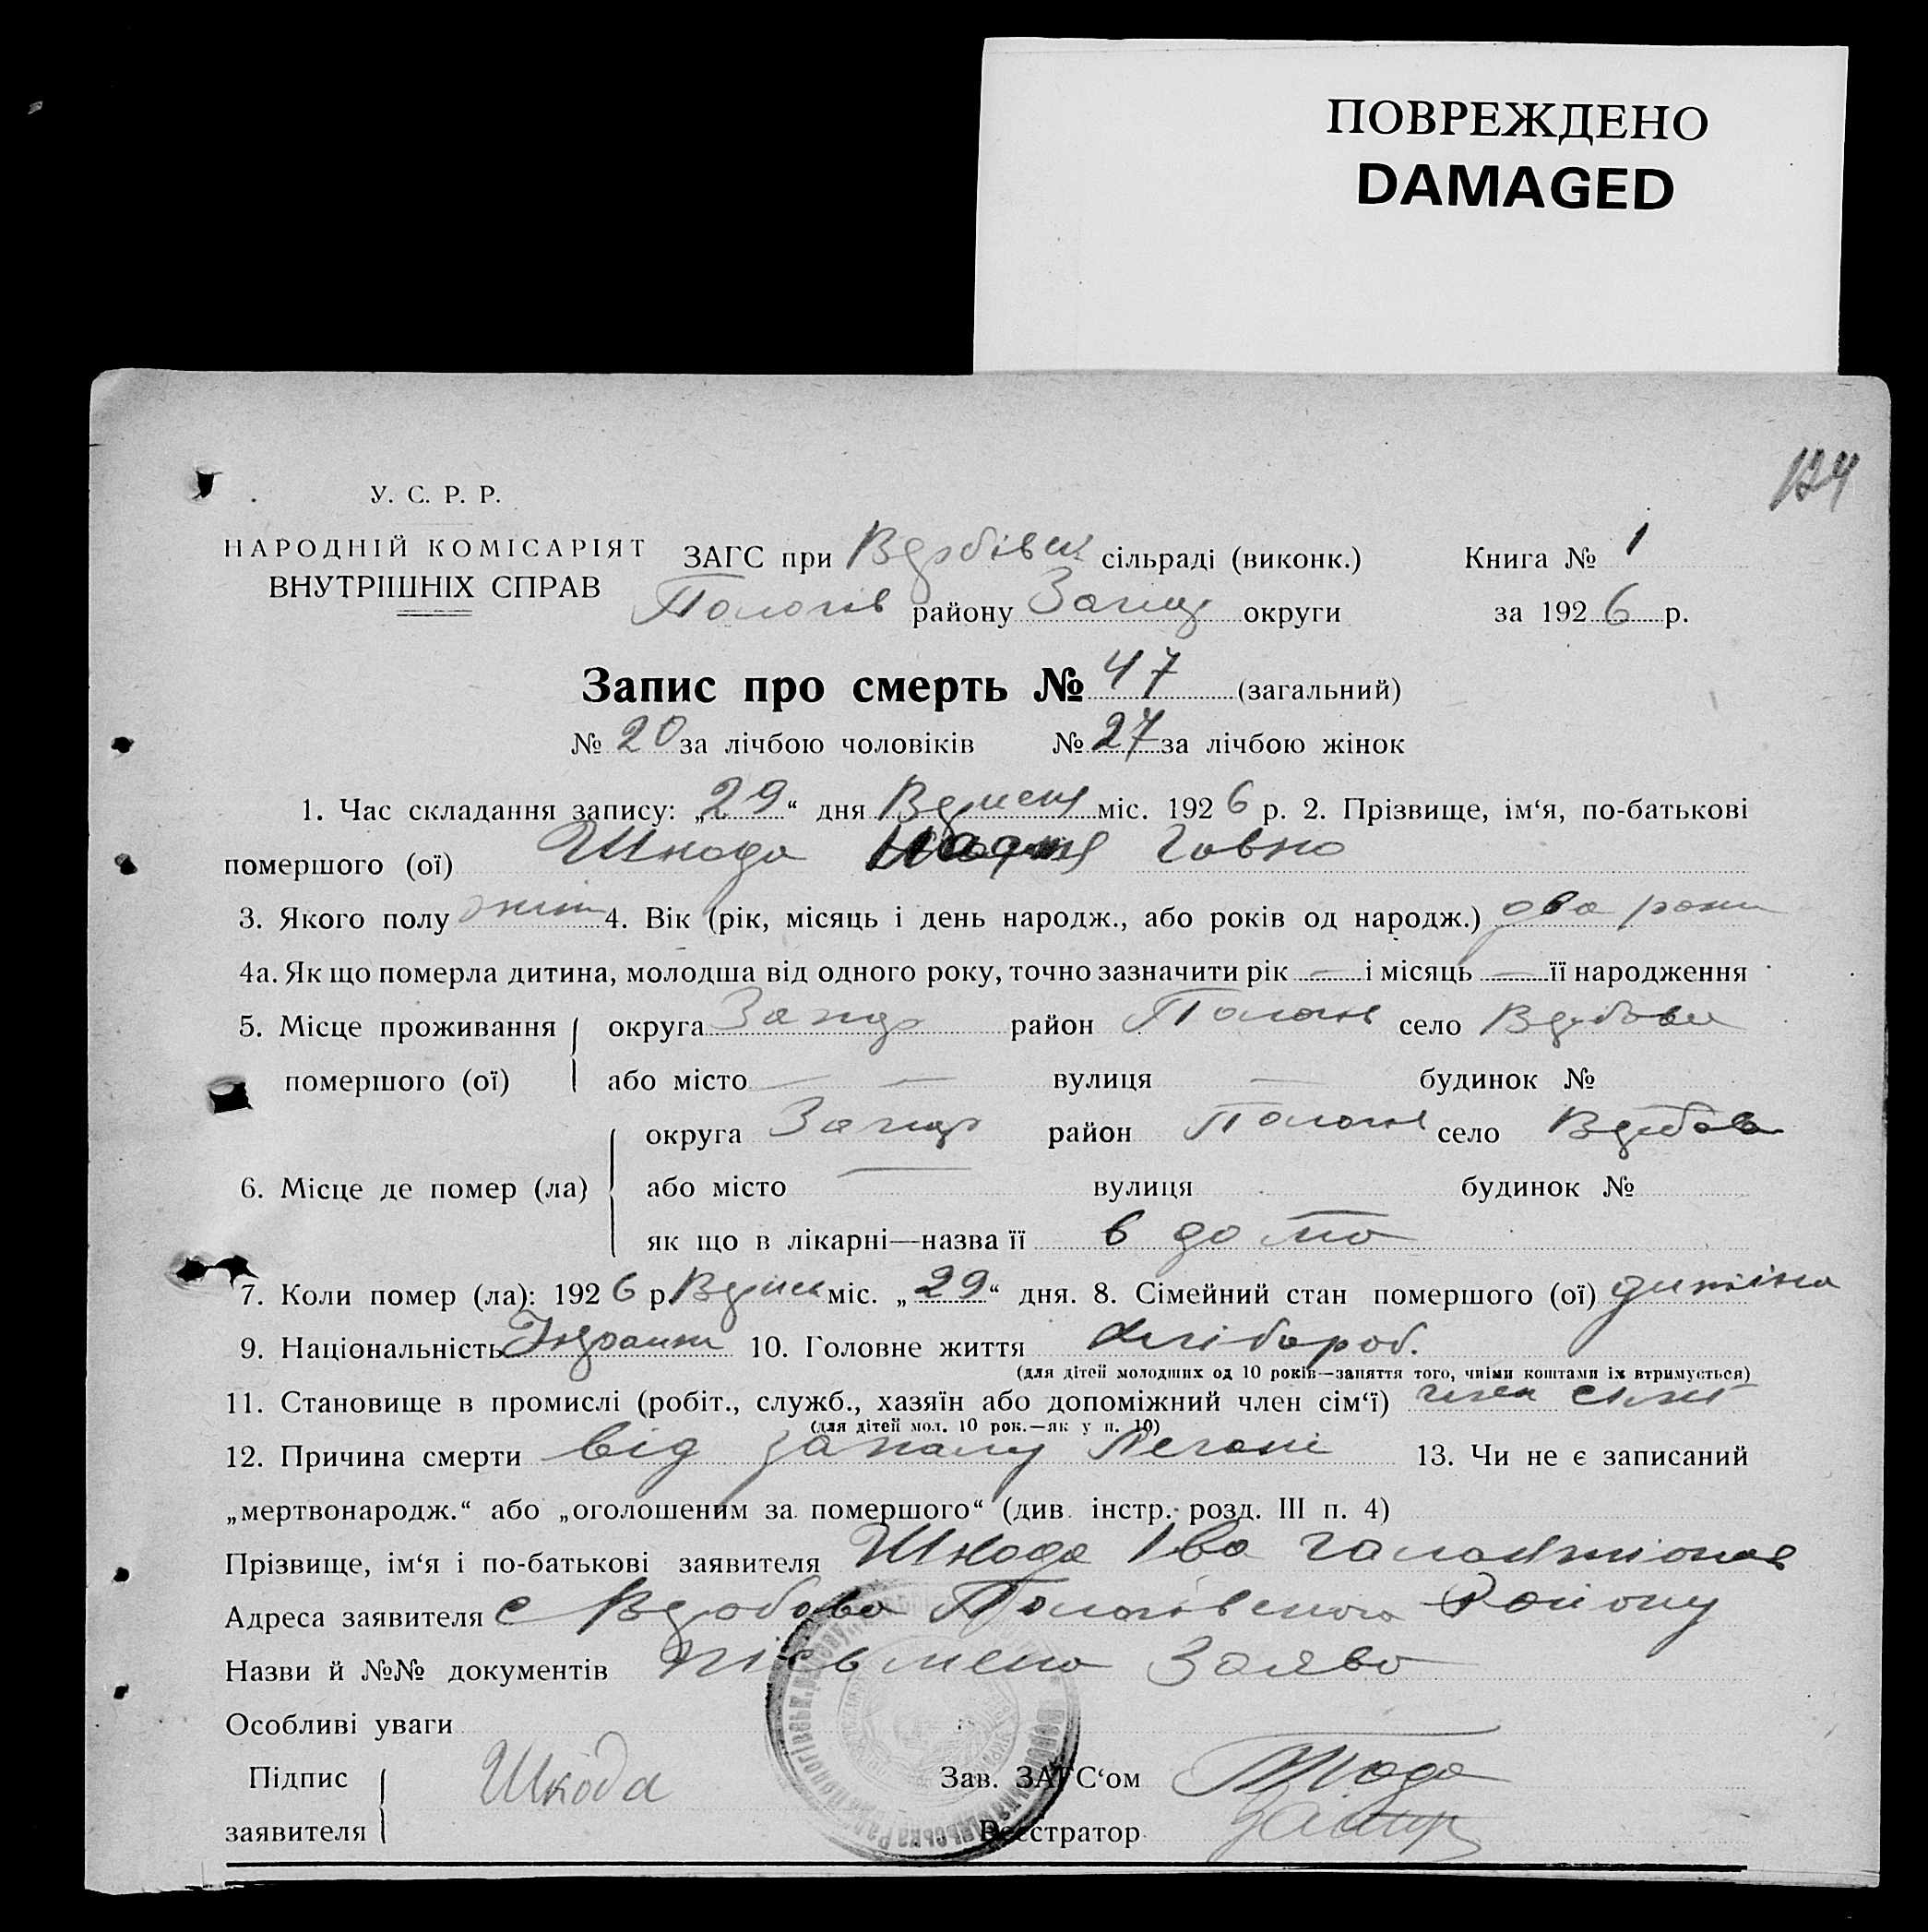 ПОВРЕЖДЕНО
DAMAGED
124
У. С. Р. Р.
НАРОДНІЙ КОМІСАРІЯТ
ВНУТРІШНІХ СПРАВ
ЗАГС при Вербівск сільраді (виконк.) Книга № 1
Пологів району Запор округи за 1926 р.
Запис про смерть № 47 (загальний)
№ 20 за лічбою чоловіків № 27 за лічбою жінок
1. Час складання запису: „29“ дня міс. 1926 р. 2. Прізвище, ім'я, по-батькові
помершого (ої) Шкода
3. Якого полу 4. Вік (рік, місяць і день народж., або років од народж.) два роки
4а. Як що померла дитина, молодша від одного року, точно зазначити рік — і місяць — її народження
5. Місце проживання округа Запор район Пологів село
помершого (ої) або місто — — вулиця — будинок №
округа Запор район Пологів село
6. Місце де помер (ла) або місто — вулиця будинок №
як що в лікарні—назва її в дома
7. Коли помер (ла): 1926 р. міс. „29“ дня. 8. Сімейний стан помершого (ої) дитина
9. Національність 10. Головне життя хлібороб.
(для дітей молодших од 10 років—заняття того, чиїми коштами їх втримується)
11. Становище в промислі (робіт., служб., хазяїн або допоміжний член сім'ї) член сімї
(для дітей мол. 10 рок.—як у п. 10)
12. Причина смерти від запалу легені 13. Чи не є записаний
„мертвонародж.“ або „оголошеним за помершого“ (див. інстр. розд. III п. 4)
Прізвище, ім'я і по-батькові заявителя Шкода Іва
Адреса заявителя с Вербова Пологівского Району
Назви й №№ документів письмена Заява
Особливі уваги
Підпис Шкода Зав. ЗАГС'ом
заявителя Реєстратор